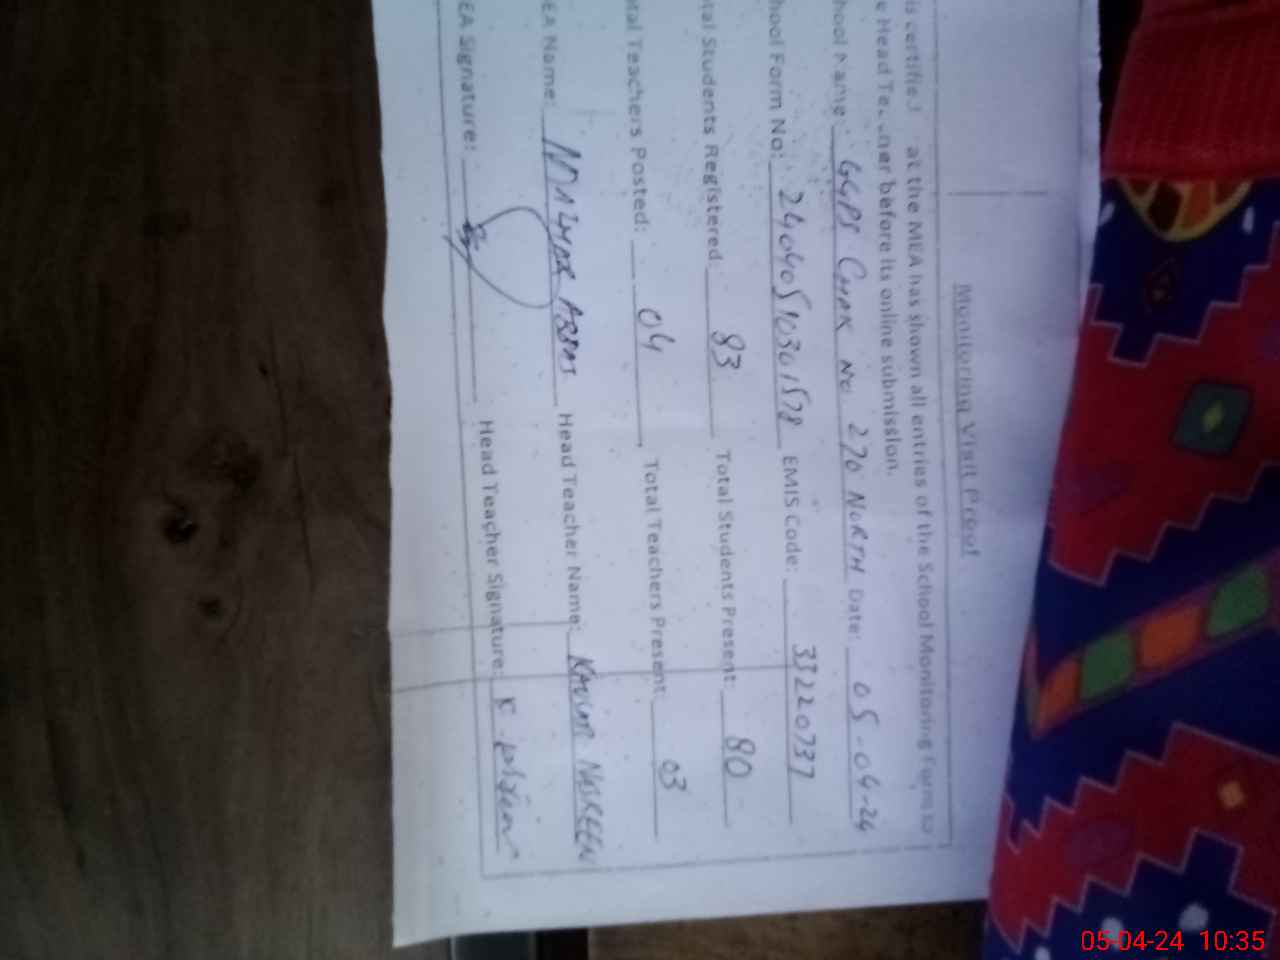 Monitoring Visit Proof
is certified at the MEA has shown all entries of the School Monitoring Form to
e Head Teacher before its online submission.
hool Name: GGPS CHAK NO 270 NORTH Date: 05-04-24
hool Form No: 24040510301578 EMIS Code: 33220737
tal Students Registered: 83 Total Students Present: 80
tal Teachers Posted: 04 Total Teachers Present: 03
EA Name: MAZHAR ABBAS Head Teacher Name: NASREEN
EA Signature: Head Teacher Signature:
05-04-24 10:35